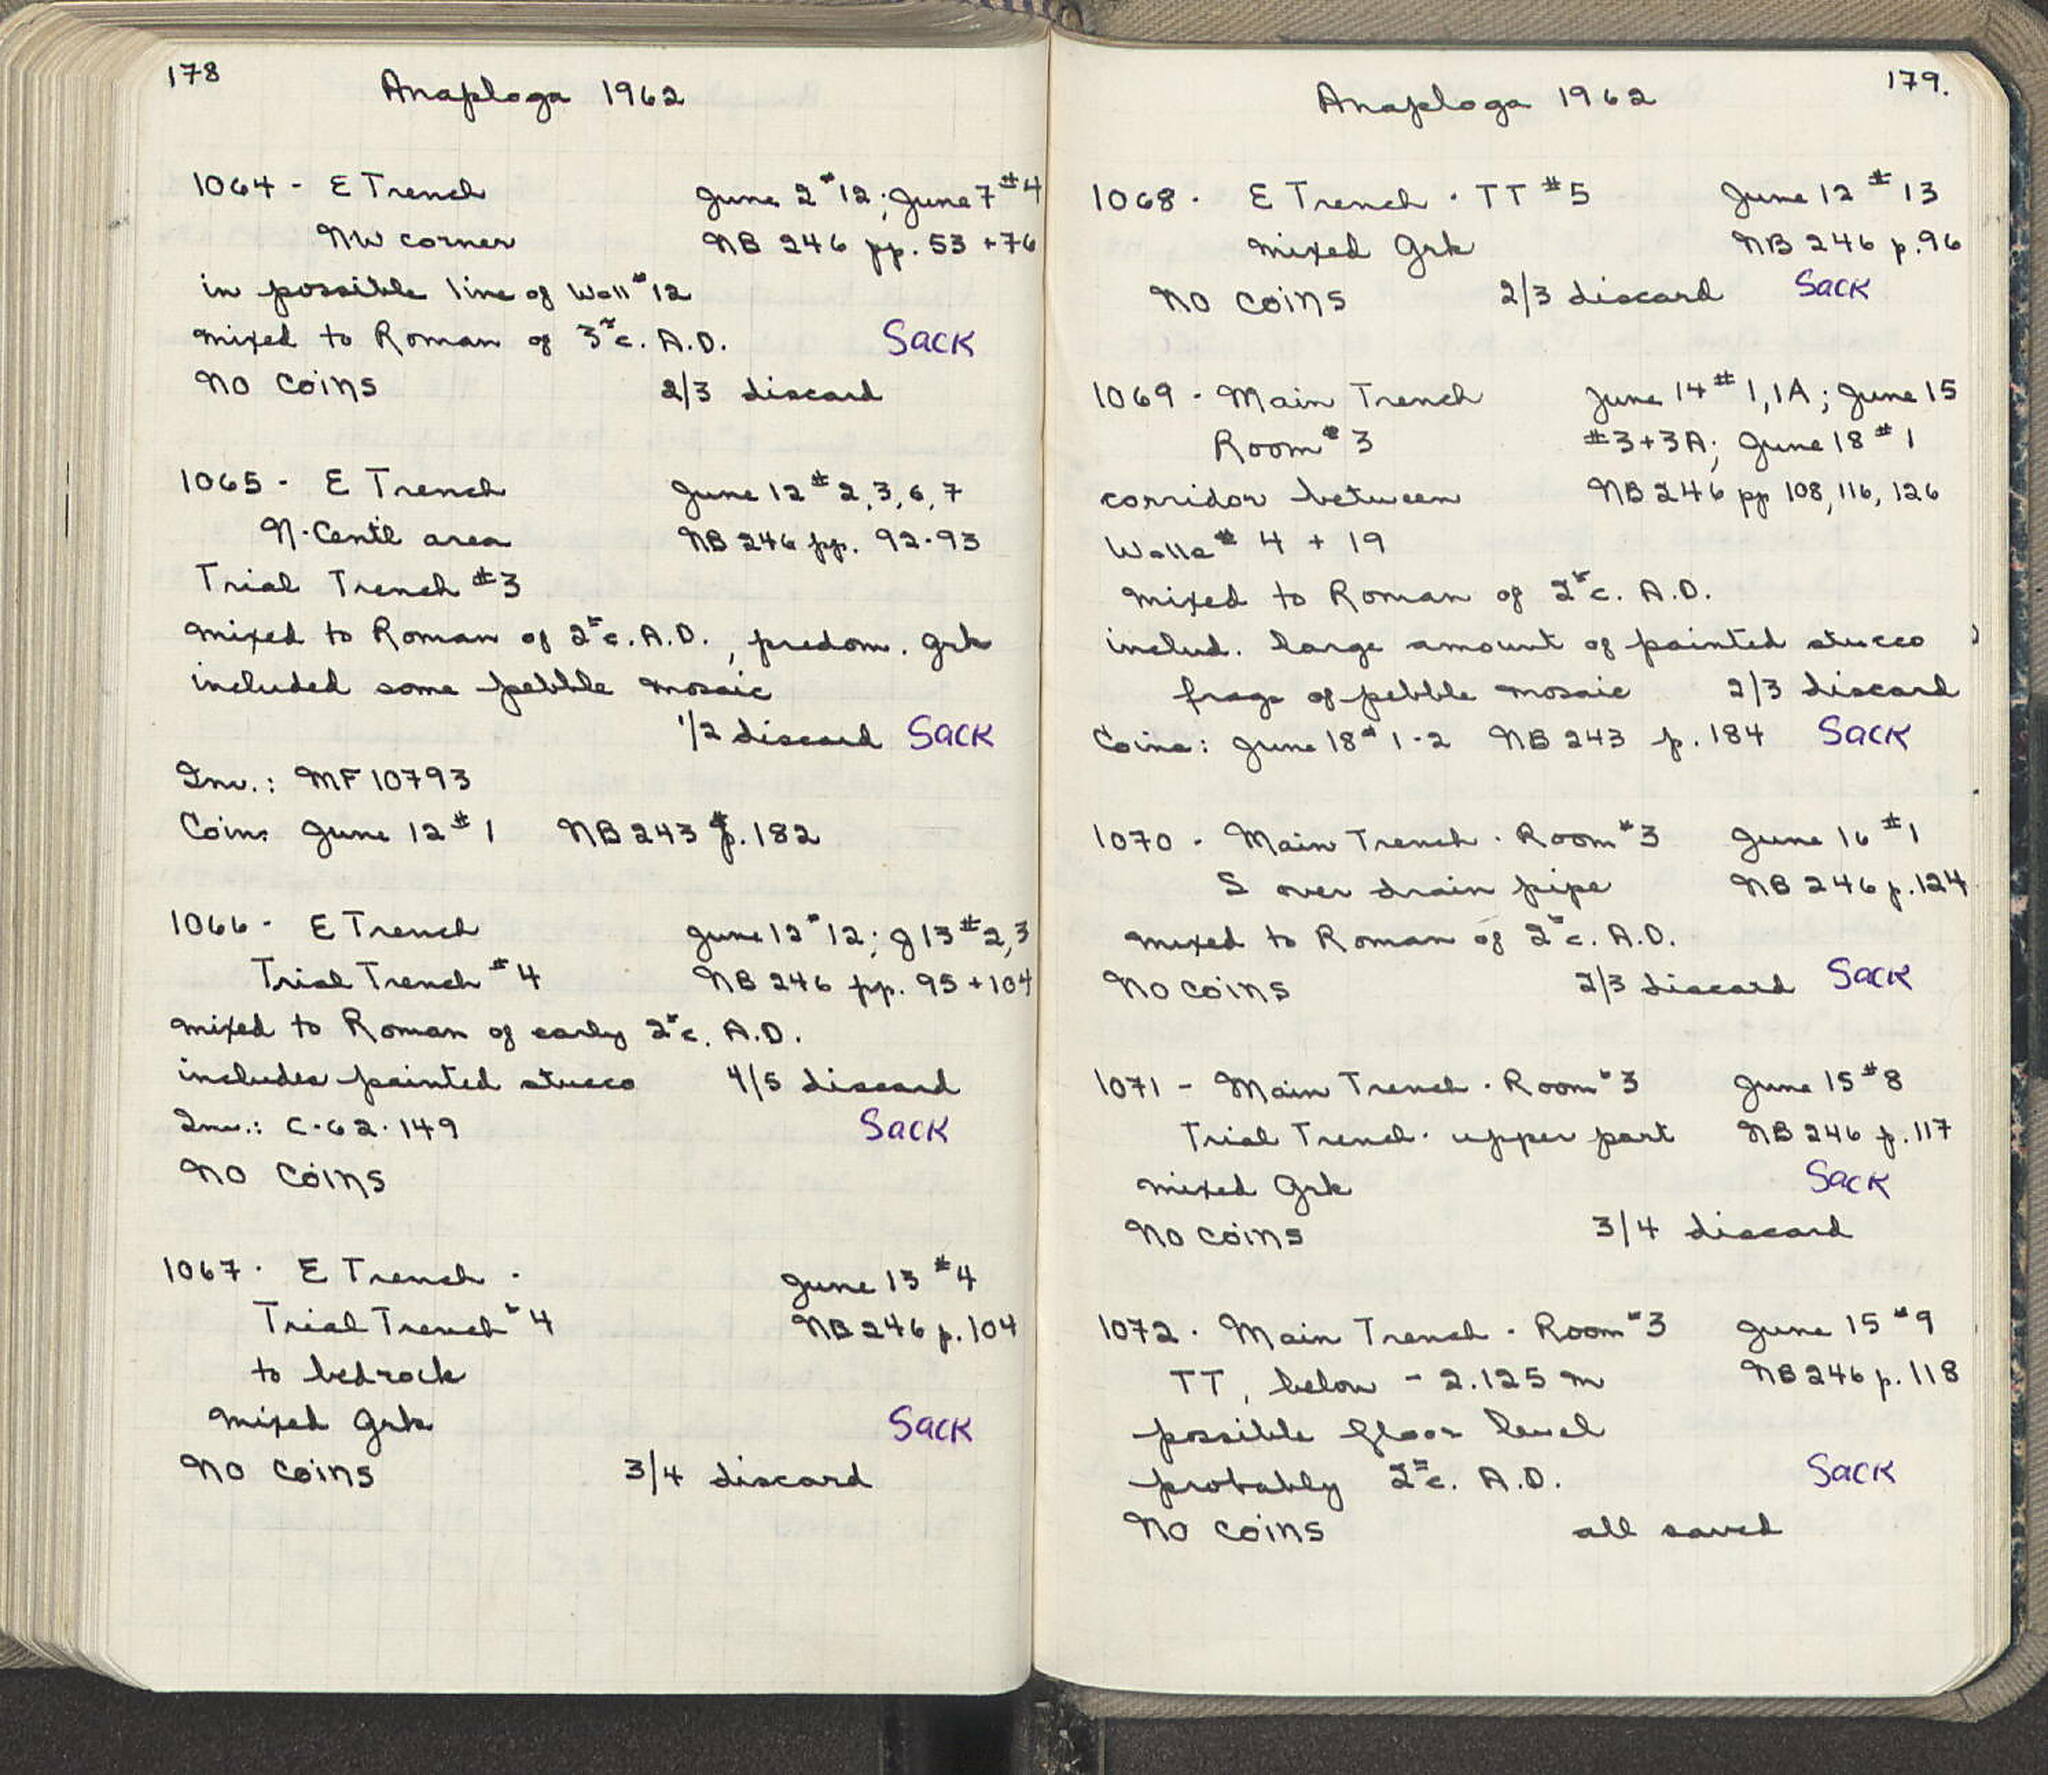 178
Anaploga 1962
1064 - E Trench June 2 #12; June 7 #4
NW corner NB 246 pp. 53 + 76
in possible line of Wall #12
mixed to Roman of 3rd c. A.D. Sack
No coins 2/3 discard
1065 - E Trench June 12 #2, 3, 6, 7
N. Cent'l area NB 246 pp. 92-93
Trial Trench #3
mixed to Roman of 2nd c. A.D., predom. Grk
included some pebble mosaic
1/2 discard Sack
Inv.: MF 10793
Coin: June 12 #1 NB 243 p. 182
1066 - E Trench June 12 #12; J 13 #2, 3
Trial Trench #4 NB 246 pp. 95 + 104
mixed to Roman of early 2nd c. A.D.
includes painted stucco 4/5 discard
Inv.: C-62-149 Sack
No coins
1067 - E Trench - June 13 #4
Trial Trench #4 NB 246 p. 104
to bedrock
mixed Grk Sack
No coins 3/4 discard
179.
Anaploga 1962
1068 - E Trench - TT #5 June 12 #13
mixed Grk NB 246 p. 96
No coins 2/3 discard Sack
1069 - Main Trench June 14 #1, 1A; June 15
Room #3 #3+3A; June 18 #1
corridor between NB 246 pp 108, 116, 126
Walls # 4 + 19
mixed to Roman of 2nd c. A.D.
includ. large amount of painted stucco
frags of pebble mosaic 2/3 discard
Coins: June 18 #1-2 NB 243 p. 184 Sack
1070 - Main Trench - Room #3 June 16 #1
S over drain pipe NB 246 p. 124
mixed to Roman of 2nd c. A.D.
No coins 2/3 discard Sack
1071 - Main Trench - Room #3 June 15 #8
Trial Trench - upper part NB 246 p. 117
mixed Grk Sack
No coins 3/4 discard
1072 - Main Trench - Room #3 June 15 #9
TT, below - 2.125 m NB 246 p. 118
possible floor level
probably 2nd c. A.D. Sack
No coins all saved